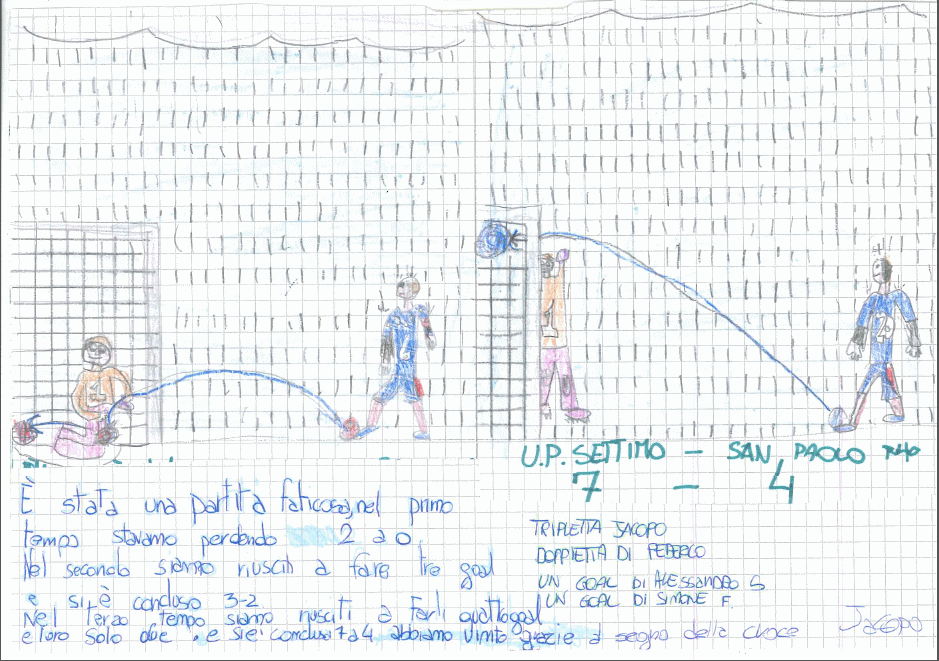 È stata una partita faticosa, nel primo
tempo stavamo perdendo 2 a 0.
Nel secondo siamo riusciti a fare tre goal
e si è concluso 3-2
Nel terzo tempo siamo riusciti a farli quattro goal
e loro solo due, e si è concluso 7 a 4 abbiamo vinto grazie al segno della croce
U.P. SETTIMO - SAN PAOLO RHO
7 - 4
TRIPLETTA JACOPO
DOPPIETTA DI FEDERICO
UN GOAL DI ALESSANDRO S
UN GOAL DI SIMONE F.
Jacopo